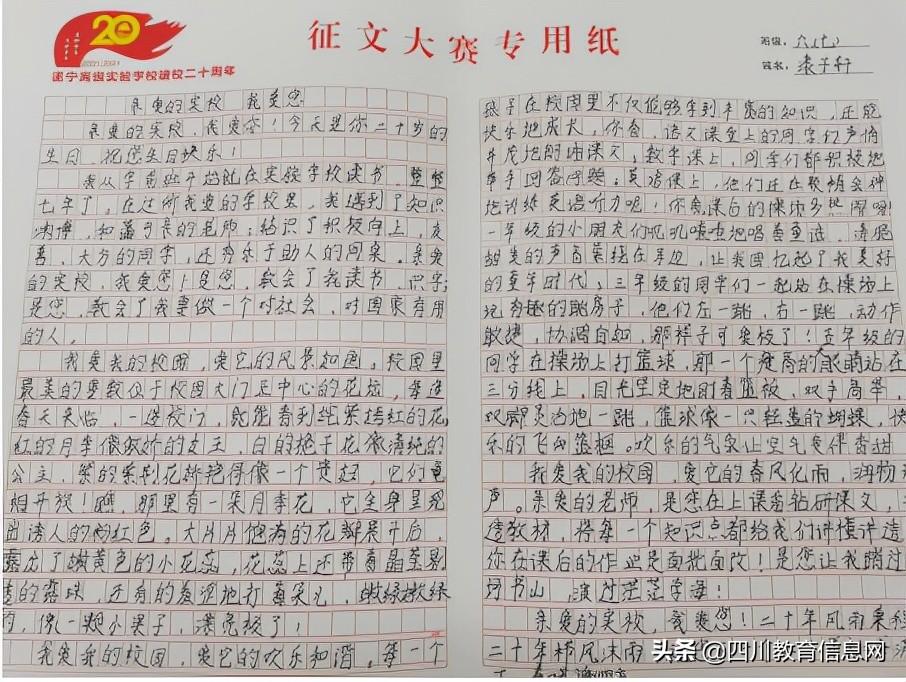 20
2001-2021
遂宁高级实验学校建校二十周年
征文大赛专用纸
班级：六（七）
姓名：袁子轩
亲爱的实校 我爱您
亲爱的实校，我爱您！今天是你二十岁的
生日，祝您生日快乐！
我从学前班开始就在实验学校读书，整整
七年了。在这所我爱的学校里，我遇到了知识
渊博，和蔼可亲的老师；结识了积极向上，友
善、大方的同学，还有乐于助人的同桌。亲爱
的实校，我爱您！是您，教会了我读书、识字；
是您，教会了我要做一个对社会、对国家有用
的人。
我爱我的校园，爱它的风景如画。校园里
最美的要数位于校园大门正中心的花坛，每逢
春天来临，一进校门，就能看到姹紫嫣红的花
红的月季像娇的女王，白的栀子花像清纯的
公主，紫的紫荆花娇艳得像一个贵妇，它们竞
相开放！瞧，那里有一朵月季花，它全身呈现
出诱人的粉红色。大片片饱满的花瓣展开后，
露出了嫩黄色的小花蕊，花蕊上还带着晶莹剔
透的露珠，还有的羞涩地打着朵儿，嫩绿嫩绿
的，像一颗小果子，漂亮极了！
我爱我的校园，爱它的欢乐和谐。每一个
孩子在校园里不仅能够学到丰富的知识，还能
快乐地成长，你看，语文课堂上的同学们声情
并茂地朗诵课文；数学课上，同学们都积极地
举手回答问题；英语课上，他们正在聚精会神
地训练英语听力呢！你看课后的操场多热闹啊
一年级的小朋友们叽叽喳喳地唱着童谣，清脆
甜美的声音萦绕在耳边，让我回忆起了我美好
的童年时代；三年级的同学们一起站在操场上
玩有趣的跳房子，他们左一跳，右一跳，动作
敏捷，协调自如，那样子可爱极了！五年级的
同学在操场上打篮球，那一个瘦高的眼睛站在
三分线上，目光坚定地盯着篮板，双手高举，
双脚灵活地一跳，篮球像一只轻盈的蝴蝶，快
乐的飞向篮框。欢乐的气氛让空气变得香甜
我爱我的校园，爱它的春风化雨，润物无
声。亲爱的老师，是您在上课前钻研课文，
透教材，将每一个知识点都给我们讲懂讲透
你在课后的作业是面批面改！是您让我踏过
书山，渡过茫茫学海！
亲爱的实校，我爱您！二十年风雨兼程
二十年栉风沐雨
头条 @四川教育信息网